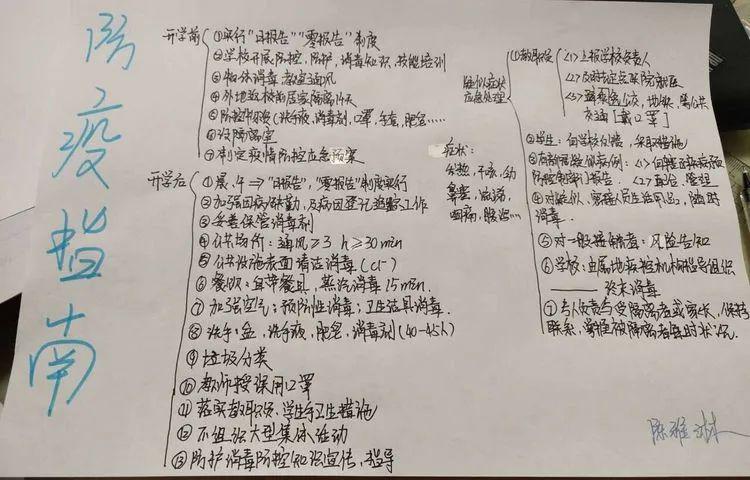 防疫指南
开学前
①实行"日报告""零报告"制度
②学校开展防控,防护,消毒知识,技能培训
③物体消毒,教室通风
④外地返校前居家隔离14天
⑤防控物资(洗手液,消毒剂,口罩,手套,肥皂……
⑥设隔离室
⑦制定疫情防控应急预案
开学后
①晨、午⇒"日报告","零报告"制度实行
②加强因病缺勤,及病因登记追踪工作
③妥善保管消毒剂
④公共场所:通风≥3 h≥30min
⑤公共设施表面清洁消毒(cl⁻)
⑥餐饮:自带餐具,蒸汽消毒15min.
⑦加强空气:预防性消毒;卫生洁具消毒.
⑧洗手:盆,洗手液,肥皂,消毒剂(40-45人)
⑨垃圾分类
⑩教师授课用口罩
⑪落实教职员、学生手卫生措施
⑫不组织大型集体活动
⑬防护消毒防控知识宣传,指导
症状:
发热,干咳,
鼻塞,流涕,
腹泻……
疑似症状
应急处理
①教职员
<1>上报学校负责人
<2>及时定点医院就医
<3>避免公交,地铁,等公共
交通[戴口罩]
②学生:向学校,采取措施
③有疑似病例:<1>向辖区疾病预
防控制部门报告.<2>
④对疑似、密接人员生活用品,随时
消毒.
⑤对一般接触者:风险告知
⑥学校:在属地疾控机构指导组织
终末消毒
⑦专人负责与受隔离者或家长,保持
联系,掌握被隔离者每时状况.